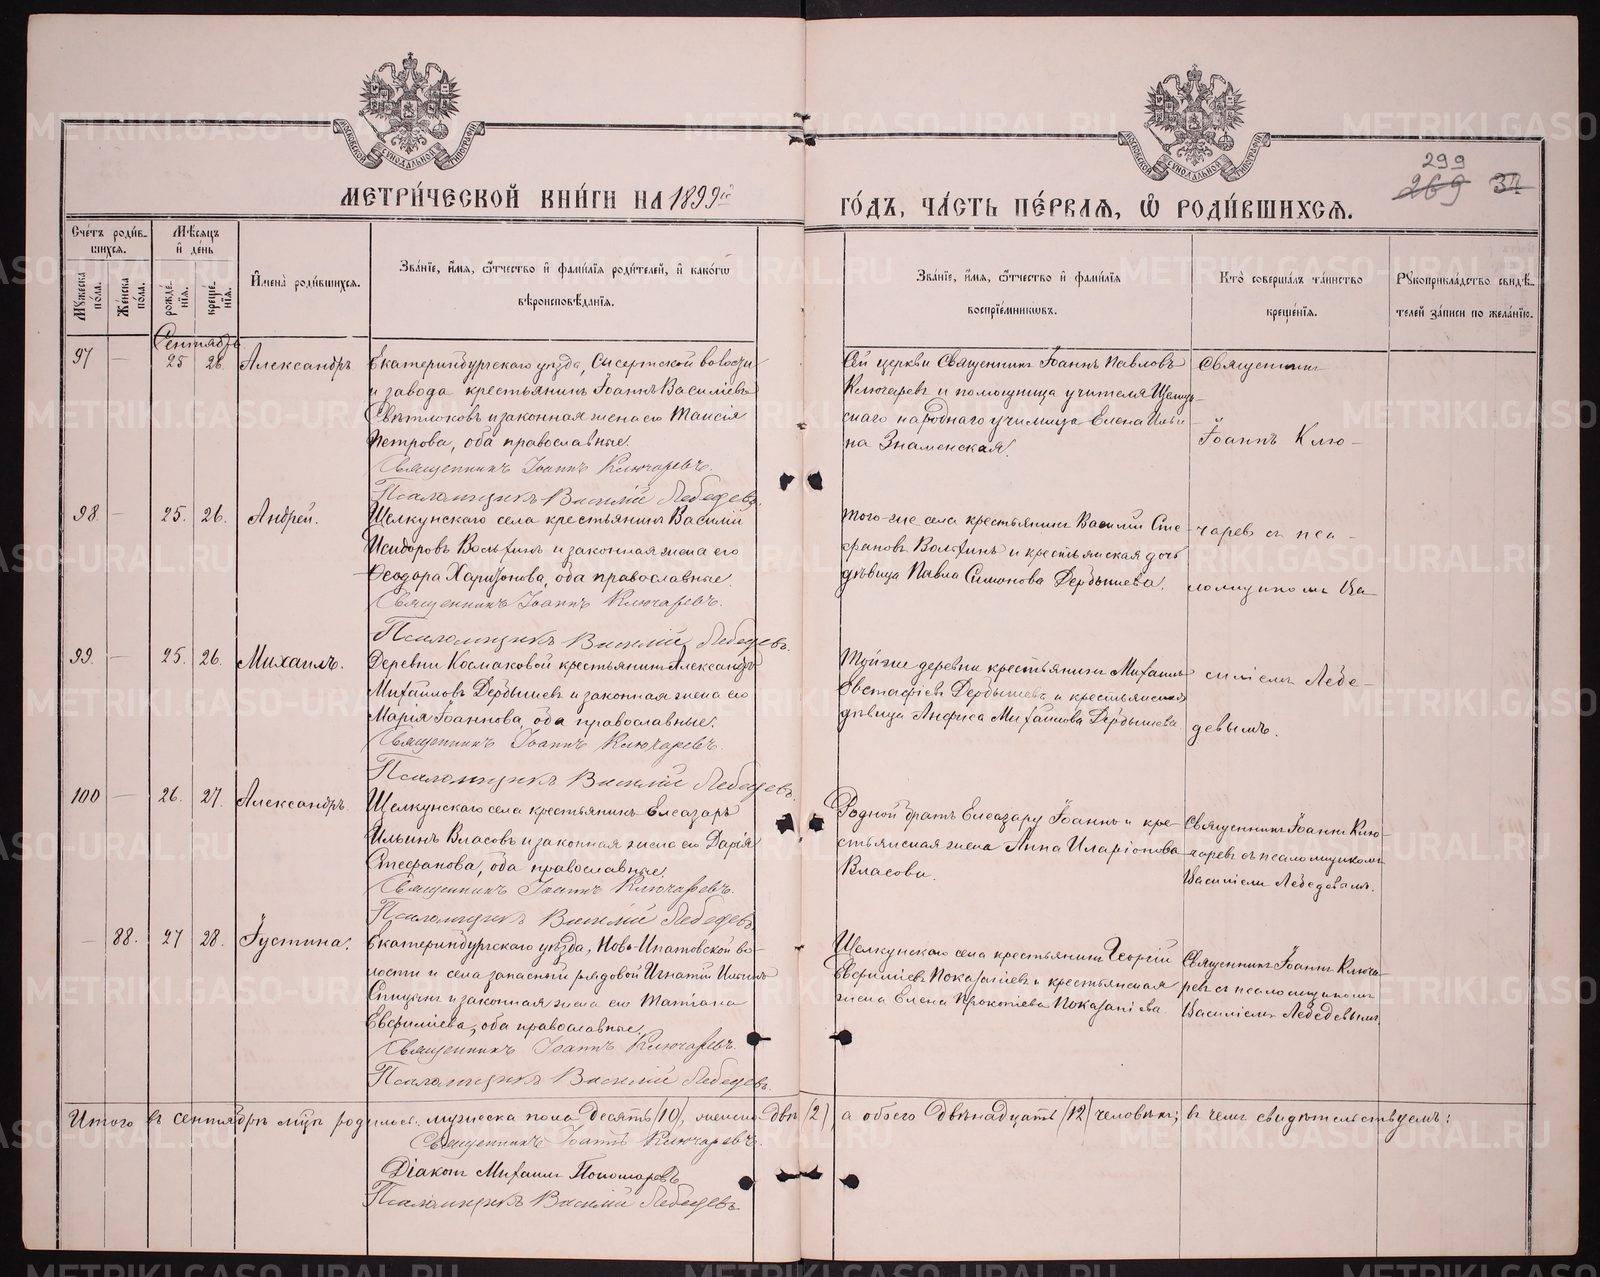 МЕТРИ́ЧЕСКОЙ КНИ́ГИ НА 1899й
ГО́ДЪ, ЧА́СТЬ ПЕ́РВАѦ, Ѿ РОДИ́ВШИХСѦ.
299
269 34
Сче́тъ роди́в-
шихсѧ.
Мꙋжеска пола.
Же́нска по́ла.
Мѣ́сѧцъ
и де́нь
рожде́-
нїѧ.
креще́-
нїѧ.
Имена̀ роди́вшихсѧ.
Зва́нїе, и́мѧ, ѻ҆́тчество и фами́лїѧ роди́телей, и како́гѡ
вѣроисповѣ́данїѧ.
Зва́нїе, и́мѧ, ѻ҆́тчество и фами́лїѧ
воспрїе́мникѡвъ.
Кто̀ соверша́лъ та́инство
креще́нїѧ.
Рꙋкоприкла́дство свидѣ́-
телей за́писи по жела́нїю.
Сентябрь
97 — 25 26. Александръ
Екатеринбургскаго уѣзда, Сысертской волости
и завода крестьянинъ Іоаннъ Василіевъ
Свѣтлоковъ и законная жена его Таисія
Петрова, оба православные.
Священникъ Іоаннъ Ключаревъ.
Псаломщикъ Василій Лебедевъ.
Сей церкви Священникъ Іоаннъ Павловъ
Ключаревъ и помощница учителя Щелкун-
скаго народнаго училища Елена Ильи-
на Знаменская.
Священникъ
Іоаннъ Клю-
98 — 25. 26. Андрей.
Щелкунскаго села крестьянинъ Василій
Исидоровъ Волхинъ и законная жена его
Ѳеодора Харитонова, оба православные.
Священникъ Іоаннъ Ключаревъ.
Псаломщикъ Василій Лебедевъ.
Того-же села крестьянинъ Василій Сте-
фановъ Волхинъ и крестьянская дочь
дѣвица Павла Симонова Дербышева.
чаревъ съ пса-
ломщикомъ Ва-
99. — 25. 26. Михаилъ.
Деревни Космаковой крестьянинъ Александръ
Михаиловъ Дербышевъ и законная жена его
Марія Іоаннова, оба православные.
Священникъ Іоаннъ Ключаревъ.
Псаломщикъ Василій Лебедевъ.
Той-же деревни крестьянинъ Михаилъ
Евстафіевъ Дербышевъ и крестьянская
дѣвица Анфиса Михаилова Дербышева
силіемъ Лебе-
девымъ.
100 — 26. 27. Александръ.
Щелкунскаго села крестьянинъ Елеазаръ
Ильинъ Власовъ и законная жена его Дарія
Стефанова, оба православные.
Священникъ Іоаннъ Ключаревъ.
Псаломщикъ Василій Лебедевъ
Родной братъ Елеазару Іоаннъ и кре-
стьянская жена Анна Иларіонова
Власовы.
Священникъ Іоаннъ Клю-
чаревъ съ псаломщикомъ
Василіемъ Лебедевымъ.
— 88. 27 28. Іустина.
Екатеринбургскаго уѣзда, Ново-Ипатовской во-
лости и села запасный рядовой Игнатій Ильинъ
Спицынъ и законная жена его Татіана
Евфиміева, оба православные.
Священникъ Іоаннъ Ключаревъ.
Псаломщикъ Василій Лебедевъ.
Щелкунскаго села крестьянинъ Георгій
Евфиміевъ Показаніевъ и крестьянская
жена Елена Прокопіева Показаніева.
Священникъ Іоаннъ Ключа-
ревъ съ псаломщикомъ
Василіемъ Лебедевымъ.
Итого въ сентябрѣ м-цѣ родилось: мужеска пола десять (10), женска двѣ (2), а обоего двѣнадцать (12) человѣкъ; въ чемъ свидѣтельствуемъ:
Священникъ Іоаннъ Ключаревъ.
Діаконъ Михаилъ Пономаревъ
Псаломщикъ Василій Лебедевъ
METRIKI.GASO-URAL.RU